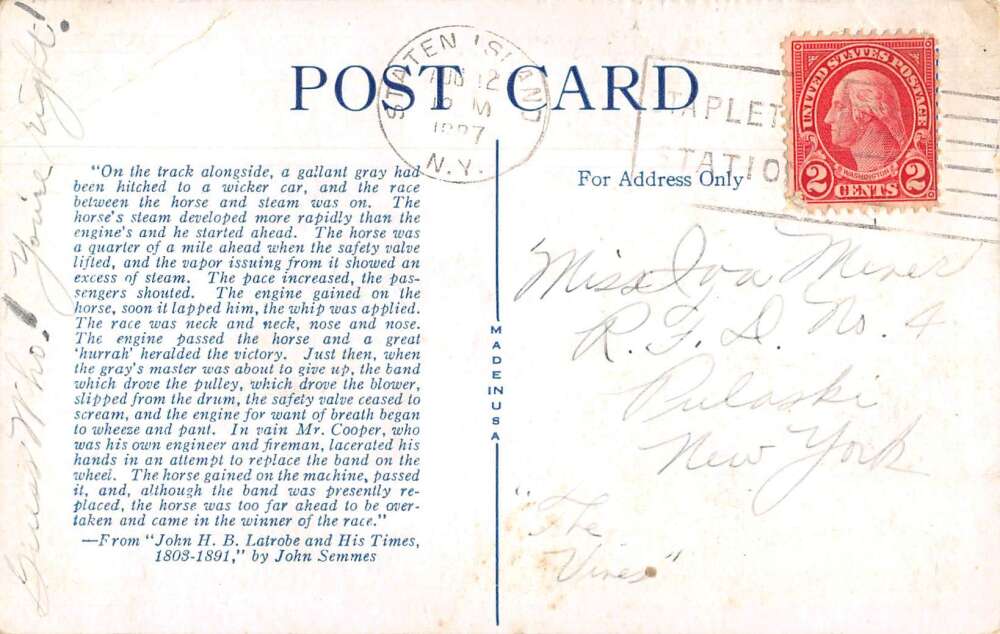 POST CARD
STATEN ISLAND
AUG 12
M
1927
N.Y.
STAPLET
STATIO
UNITED STATES POSTAGE
WASHINGTON
2 CENTS 2
For Address Only
"On the track alongside, a gallant gray had
been hitched to a wicker car, and the race
between the horse and steam was on. The
horse's steam developed more rapidly than the
engine's and he started ahead. The horse was
a quarter of a mile ahead when the safety valve
lifted, and the vapor issuing from it showed an
excess of steam. The pace increased, the pas-
sengers shouted. The engine gained on the
horse, soon it lapped him, the whip was applied.
The race was neck and neck, nose and nose.
The engine passed the horse and a great
'hurrah' heralded the victory. Just then, when
the gray's master was about to give up, the band
which drove the pulley, which drove the blower,
slipped from the drum, the safety valve ceased to
scream, and the engine for want of breath began
to wheeze and pant. In vain Mr. Cooper, who
was his own engineer and fireman, lacerated his
hands in an attempt to replace the band on the
wheel. The horse gained on the machine, passed
it, and, although the band was presently re-
placed, the horse was too far ahead to be over-
taken and came in the winner of the race."
—From "John H. B. Latrobe and His Times,
1803-1891," by John Semmes
MADE IN USA
Guess Who! You're right!
Miss Iva Miner
R.F.D. No. 4
Pulaski
New York
"The
Vines"